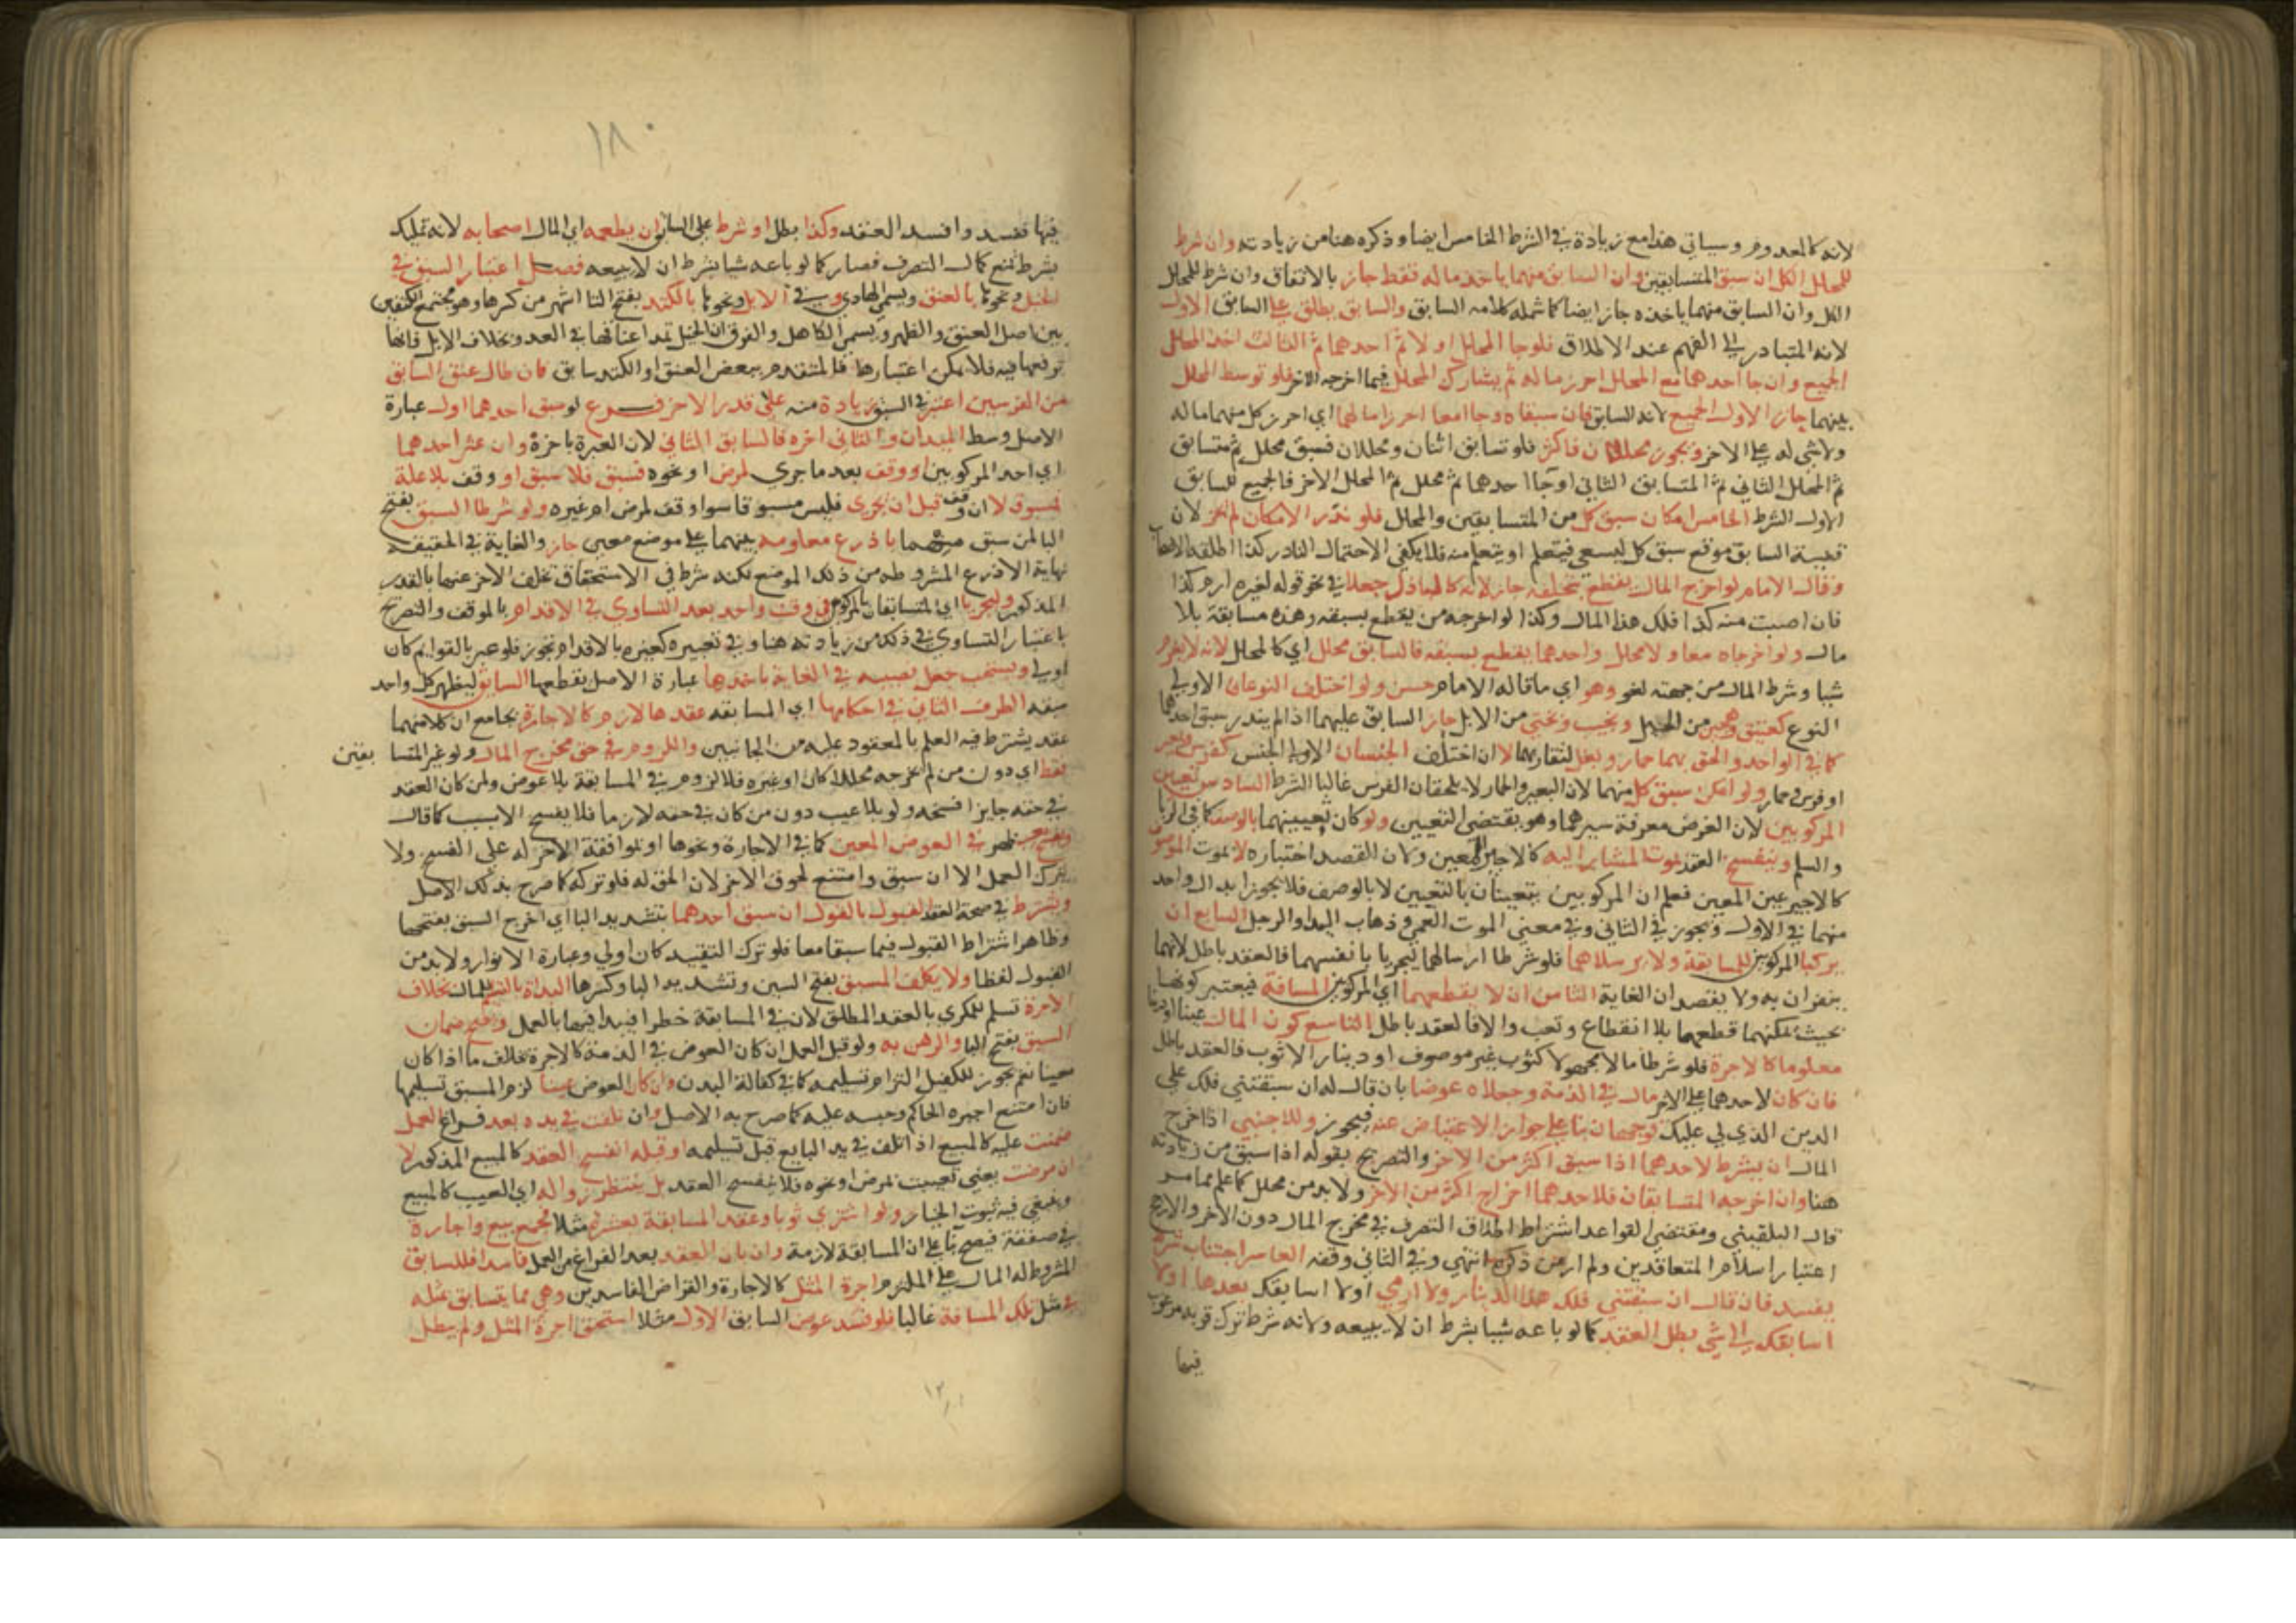 لانه كالمعدوم وسياتي هذا مع زيادة في الشرط الخامس ايضا وذكره هنا من زيادته وان شرط
للمحلل الكل ان سبق المتسابقين وان السابق منهما ياخذ ماله فقط جاز بالاتفاق وان شرط للمحلل
الكل وان السابق منهما ياخذه جاز ايضا كما شمله كلامه السابق والسابق يطلق على السابق الاول
لانه المتبادر الى الفهم عند الاطلاق فلو جا المحلل اولا ثم احدهما ثم الثالث اخذ المحلل
الجميع وان جا احدهما مع المحلل احرز ماله ثم يشارك المحلل فيما اخرجه الاخر فلو توسط المحلل
بينهما حاز الاول الجميع لانه السابق فان سبقاه وجاا معا احرزا مالهما اي احرز كل منهما ماله
ولا شي له على الاخر ويجوز محللان فاكثر فلو تسابق اثنان ومحللان فسبق محلل ثم متسابق
ثم المحلل الثاني ثم المتسابق الثاني او جاا احدهما ثم محلل ثم المحلل الاخر فالجميع للسابق
الاول الشرط الخامس امكان سبق كل من المتسابقين والمحلل فلو ندر الامكان لم يجز لان
قضية السابق موقع سبق كل ليسعى فيتعلم او يتعلم منه فلا يكفي الاحتمال النادر كذا اطلقه الاصحاب
وقال الامام لو اخرج المال يقطع بتخلفه جاز لانه كالباذل جعلا في نحو قوله لغيره ارم كذا
فان اصبت منه كذا فلك هذا المال وكذا لو اخرجه من يقطع بسبقه وهذه مسابقة بلا
مال ولو اخرجاه معا ولا محلل واحدهما يقطع بسبقه فالسابق محلل اي كالمحلل لانه لا يغرم
شيا وشرط المال من جهته لغو وهو اي ما قاله الامام حسن ولو اختلف النوعان الاولى
النوع كعتيق وهجين من الخيل ونجيب وبختي من الابل جاز السابق عليهما اذا لم يندر سبق احدهما
كما في الواحد والحق بهما حمار وبغل لتقاربهما لا ان اختلف الجنسان الاولى الجنس كفرس وبعير
او فرس وحمار ولو امكن سبق كل منهما لان البعير والحمار لا يلحقان الفرس غالبا الشرط السادس تعيين
المركوبين لان الغرض معرفة سيرهما وهو يقتضي التعيين ولو كان تعيينهما بالوصف كما في الربا
والسلم وينفسخ العقد بموت المشار اليه كالاجير المعين ولان القصد اختباره لا بموت الموصوف
كالاجير غير المعين فعلم ان المركوبين يتعينان بالتعيين لا بالوصف فلا يجوز ابدال واحد
منهما في الاول ويجوز في الثاني وفي معنى الموت العمى وذهاب اليد او الرجل السابع ان
يركبا المركوبين للمسابقة ولا يرسلاهما فلو شرطا ارسالهما ليجريا بانفسهما فالعقد باطل لانهما
ينفران به ولا يقصدان الغاية الثامن ان لا يقطعهما اي المركوبين المسافة فيعتبر كونهما
بحيث يمكنهما قطعهما بلا انقطاع وتعب والا فالعقد باطل التاسع كون المال عينا او دينا
معلوما كالاجرة فلو شرطا مالا مجهولا كثوب غير موصوف او دينار الا ثوب فالعقد باطل
فان كان لاحدهما على الاخر مال في الذمة وجعلاه عوضا بان قال له ان سبقتني فلك علي
الدين الذي لي عليك فوجهان بنا على جواز الاعتياض عنه فيجوز وللاجنبي اذا اخرج
المال ان يشرط لاحدهما اذا سبق اكثر من الاخر والتصريح بقوله اذا سبق من زيادته
هنا وان اخرجه المتسابقان فلاحدهما اخراج اكثر من الاخر ولا بد من محلل كما علم مما مر
قال البلقيني ومقتضى القواعد اشتراط اطلاق التصرف في مخرج المال دون الاخر والارجح
اعتبار اسلام المتعاقدين ولم ار من ذكره انتهى وفي الثاني وقفه العاشر اجتناب شرط
يفسد فان قال ان سبقتني فلك هذا الدينار ولا ارمي او لا اسابقك بعدها او لا
اسابقك الى شي بطل العقد كما لو باعه شيا بشرط ان لا يبيعه ولانه شرط ترك قربة مرغوب
فيها
١٨٠
فيها ففسد وافسد العقد وكذا بطل لو شرط على السابق ان يطعمه اي المال اصحابه لانه تمليك
بشرط يمنع كمال التصرف فصار كما لو باعه شيا بشرط ان لا يبيعه فصل اعتبار السبق في
الخيل ونحوها بالعنق ويسمى الهادي وفي الابل ونحوها بالكتد بفتح التا اشهر من كسرها وهو مجتمع الكتفين
بين اصل العنق والظهر ويسمى الكاهل والفرق ان الخيل تمد اعناقها في العدو بخلاف الابل فانها
ترفعها فيه فلا يمكن اعتبارها فالمتقدم ببعض العنق او الكتد سابق فان طال عنق السابق
من الفرسين اعتبر في السبق زيادة منه على قدر الاخر فرع لو سبق احدهما اول عبارة
الاصل وسط الميدان والثاني اخره فالسابق الثاني لان العبرة باخره وان عثر احدهما
اي احد المركوبين او وقف بعد ما جرى لمرض او نحوه فسبق فلا سبق او وقف بلا علة
فمسبوق لا ان وقف قبل ان يجري فليس مسبوقا سوا وقف لمرض ام غيره ولو شرطا السبق بفتح
البا لمن سبق منهما باذرع معلومة بينهما على موضع معين جاز والغاية في الحقيقة
نهاية الاذرع المشروطة من ذلك الموضع لكنه شرط في الاستحقاق تخلف الاخر عنها بالقدر
المذكور وليجريا اي المتسابقان بالمركوبين في وقت واحد بعد التساوي في الاقدام بالموقف والتصريح
باعتبار التساوي في ذلك من زيادته هنا وفي تعبيره كغيره بالاقدام تجوز فلو عبر بالقوايم كان
اولى ويستحب جعل قصبة في الغاية ياخذها عبارة الاصل يقطعها السابق ليظهر لكل واحد
سبقه الطرف الثاني في احكامها اي المسابقة عقدها لازم كالاجارة بجامع ان كلا منهما
عقد يشترط فيه العلم بالمعقود عليه من الجانبين واللزوم في حق مخرج المال ولو غير المتسا بقين
فقط اي دون من لم يخرجه محللا كان او غيره فلا لزوم في المسابقة بلا عوض ولمن كان العقد
في حقه جايزا فسخه ولو بلا عيب دون من كان في حقه لازما فلا يفسخ الا بسبب كما قال
ويفسخ بعيب ظهر في العوض المعين كما في الاجارة ونحوها او بموافقة الاخر له على الفسخ ولا
يترك العمل الا ان سبق وامتنع لحوق الاخر لان الحق له فلو تركه كما صرح بذلك الاصل
ويشترط في صحة العقد القبول بالقول ان سبق احدهما بتشديد البا اي اخرج السبق بفتحها
وظاهر اشتراط القبول فيما سبقا معا فلو ترك التقييد كان اولى وعبارة الانوار ولا بد من
القبول لفظا ولا يكلف المسبق بفتح السين وتشديد البا وكسرها البداة بالتسليم للمال بخلاف
الاجرة تسلم للمكري بالعقد المطلق لان في المسابقة خطرا فيبدا فيها بالعمل ويصح ضمان
السبق بفتح البا والرهن به ولو قبل العمل ان كان العوض في الذمة كالاجرة بخلاف ما اذا كان
معينا نعم يجوز للكفيل التزام تسليمه كما في كفالة البدن وان كان العوض عينا لزم المسبق تسليمها
فان امتنع اجبره الحاكم وحبسه عليه كما صرح به الاصل وان تلفت في يده بعد فراغ العمل
ضمنت عليه كالمبيع اذا تلف في يد البايع قبل تسليمه او قبله انفسخ العقد كالمبيع المذكور لا
ان مرضت يعني تعيبت لمرض او نحوه فلا ينفسخ العقد بل ينتظر زواله اي العيب كالمبيع
وينبغي فيه ثبوت الخيار ولو اشترى ثوبا وعقد المسابقة بعشرة مثلا فجمع بيع واجارة
في صفقة فيصح بنا على ان المسابقة لازمة وان بان العقد بعد الفراغ من العمل فاسدا فللسابق
المشروط له المال على الملتزم اجرة المثل كالاجارة والقراض الفاسدين وهي مما يتسابق بمثله
في مثل تلك المسافة غالبا فلو فسد عوض السابق الاول مثلا استحق اجرة المثل ولم يبطل